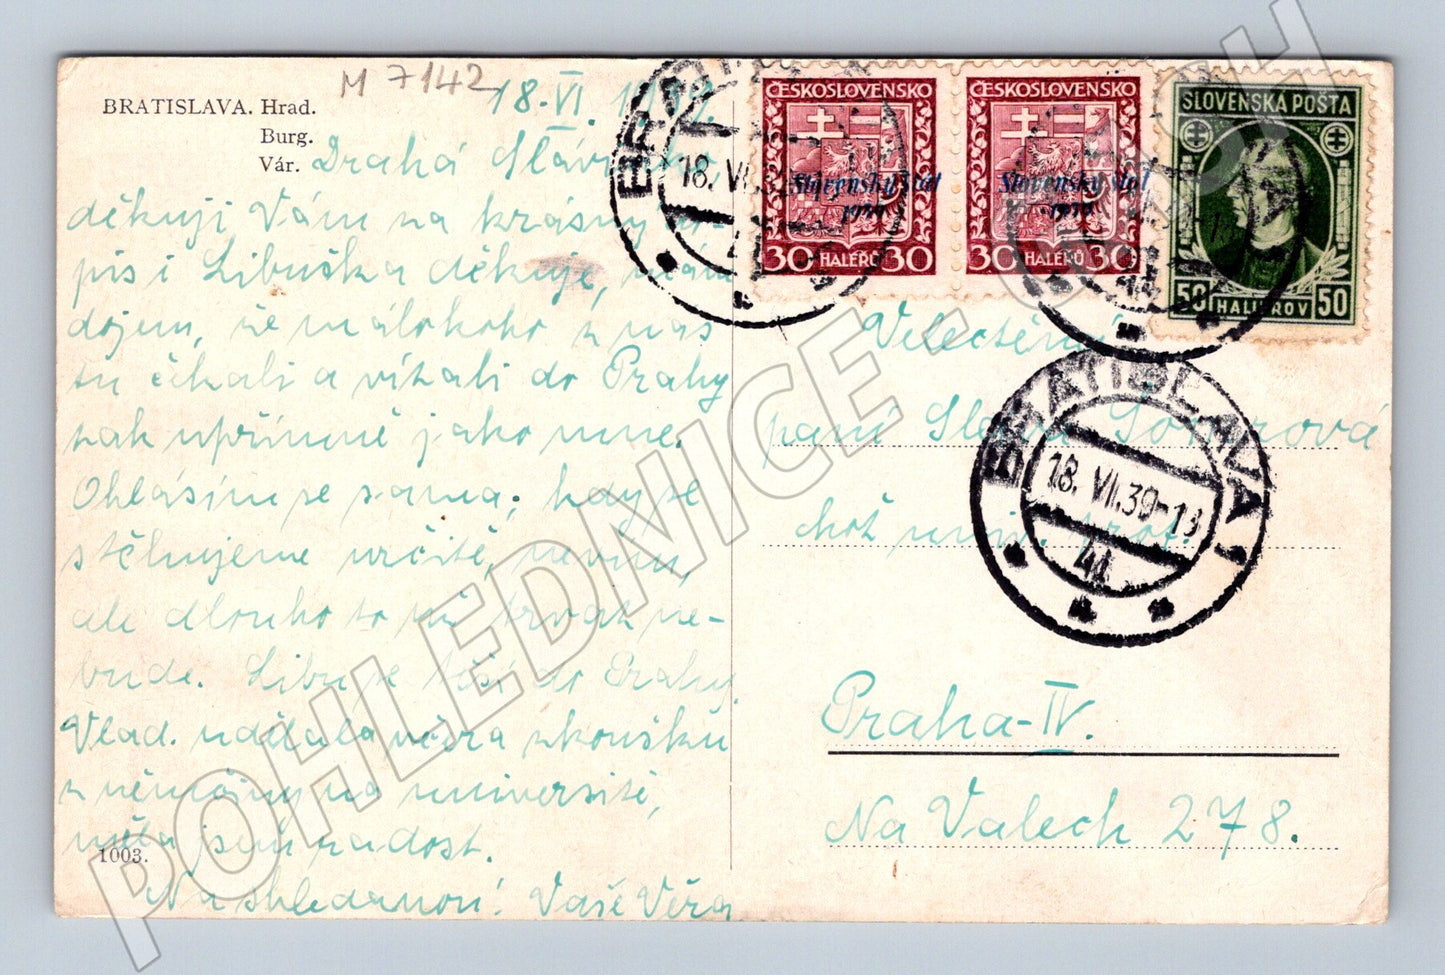 M 7142
BRATISLAVA. Hrad.
Burg.
Vár.
18. VI. 1939.
Drahá
děkuji Vám za krásný do-
pis i Libuška děkuje, mám
dojem, že málokoho z nás
tu čekali a vítali do Prahy
tak upřímně jako mne.
Ohlásím se sama, kdy se
stěhujeme určitě, nevím,
ale dlouho to už trvat ne-
bude. Libu se těší do Prahy.
Vlad. udělala včera zkoušku
z němčiny na universitě,
měla jsem radost.
Na shledanou! Vaše Věra
1003.
ČESKOSLOVENSKO
Slovenský štát
1939
30 HALÉŘŮ 30
ČESKOSLOVENSKO
Slovenský štát
1939
30 HALÉŘŮ 30
SLOVENSKÁ POŠTA
50 HALIEROV 50
BRATISLAVA
18. VI.
BRATISLAVA 1
18. VI. 39-13
4d
Velectěná
paní Sláva
chot univ. prof.
Praha-IV.
Na Valech 278.
POHLEDNICE - SBERATEL